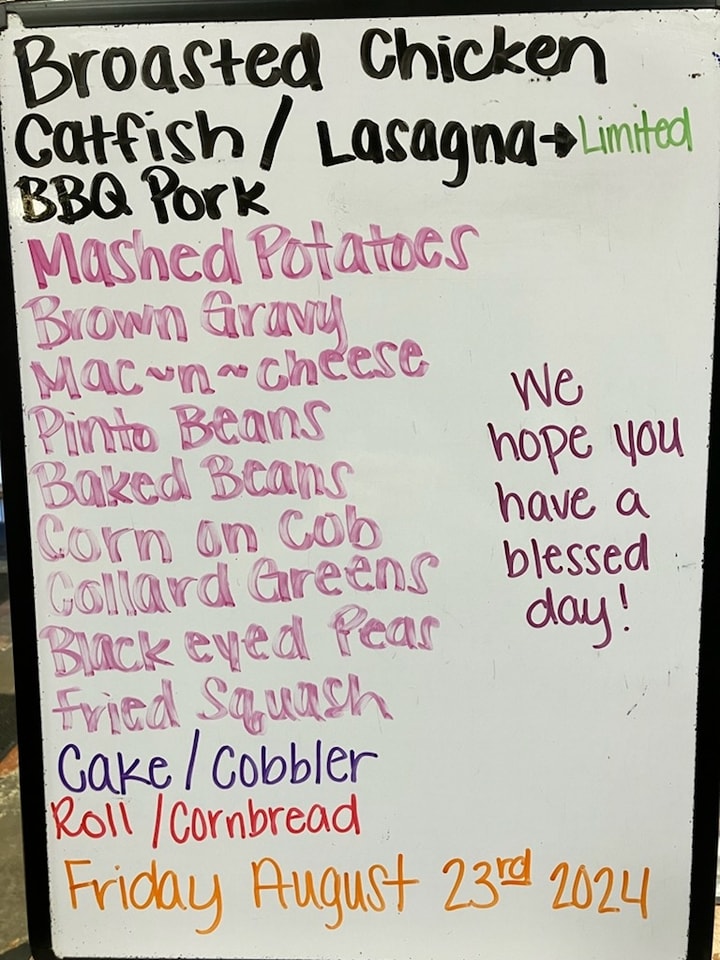 Broasted Chicken
Catfish / Lasagna→Limited
BBQ Pork
Mashed Potatoes
Brown Gravy
Mac~n~cheese
Pinto Beans
Baked Beans
Corn on Cob
Collard Greens
Black eyed Peas
Fried Squash
Cake / Cobbler
Roll / Cornbread
Friday August 23rd 2024
We
hope you
have a
blessed
day!